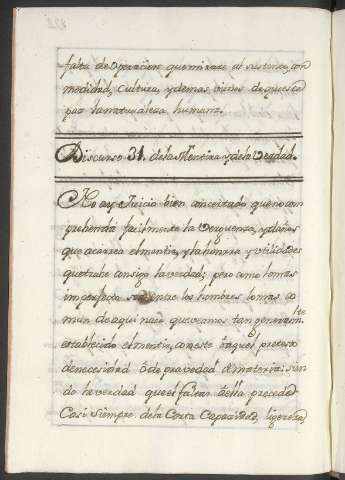 falta de operacion que mirase al sustento, com
modidad, cultura, y demas vienes de que es ca
paz la naturaleza humana.
Discurso 31. de la Mentira y de la Verdad.
No ay Juicio bien concertado que no com
prehenda facilmente la verguenza, y daños
que acarrea el mentir, y la honrra y utilidades
que trahe consigo la verdad; pero como lo mas
imperfecto entre los hombres lo mas co
mun de aqui nace que veamos tan generalm.te
establecido el mentir, con este ô aquel pretexto
de necesidad ô de gravedad de materia: sien
do la verdad que el faltar â ella procede
Casi siempre de la Corta Capacidad, ligereza